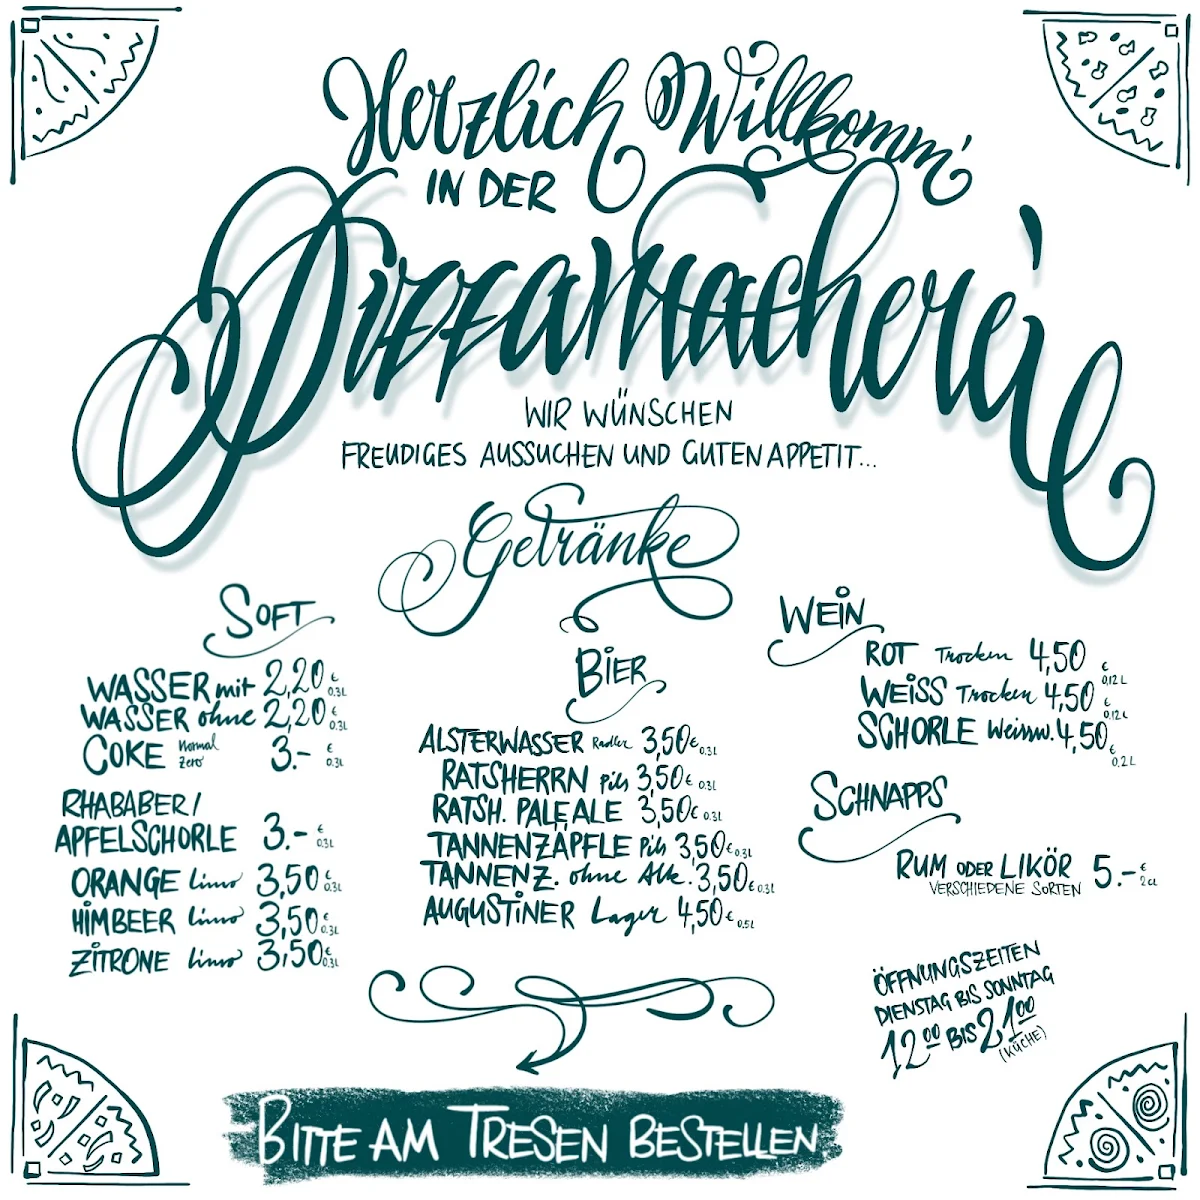 Herzlich Willkomm'
IN DER
Pizzamacherei
WIR WÜNSCHEN
FREUDIGES AUSSUCHEN UND GUTEN APPETIT...
Getränke
SOFT
WASSER mit 2,20 € 0.3L
WASSER ohne 2,20 € 0.3L
COKE Normal Zero 3.- € 0.3L
RHABABER/
APFELSCHORLE 3.- € 0.3L
ORANGE Limo 3,50 € 0.3L
HIMBEER Limo 3,50 € 0.3L
ZITRONE Limo 3,50 € 0.3L
BIER
ALSTERWASSER Radler 3,50 € 0.3L
RATSHERRN Pils 3,50 € 0.3L
RATSH. PALE ALE 3,50 € 0.3L
TANNENZÄPFLE Pils 3,50 € 0.3L
TANNENZ. ohne Alk. 3,50 € 0.3L
AUGUSTINER Lager 4,50 € 0.5L
WEIN
ROT Trocken 4,50 € 0,12L
WEISS Trocken 4,50 € 0,12L
SCHORLE Weissw. 4,50 € 0.2L
SCHNAPPS
RUM ODER LIKÖR 5.- € 2cL
VERSCHIEDENE SORTEN
ÖFFNUNGSZEITEN
DIENSTAG BIS SONNTAG
12 00 BIS 21 00
(KÜCHE)
BITTE AM TRESEN BESTELLEN